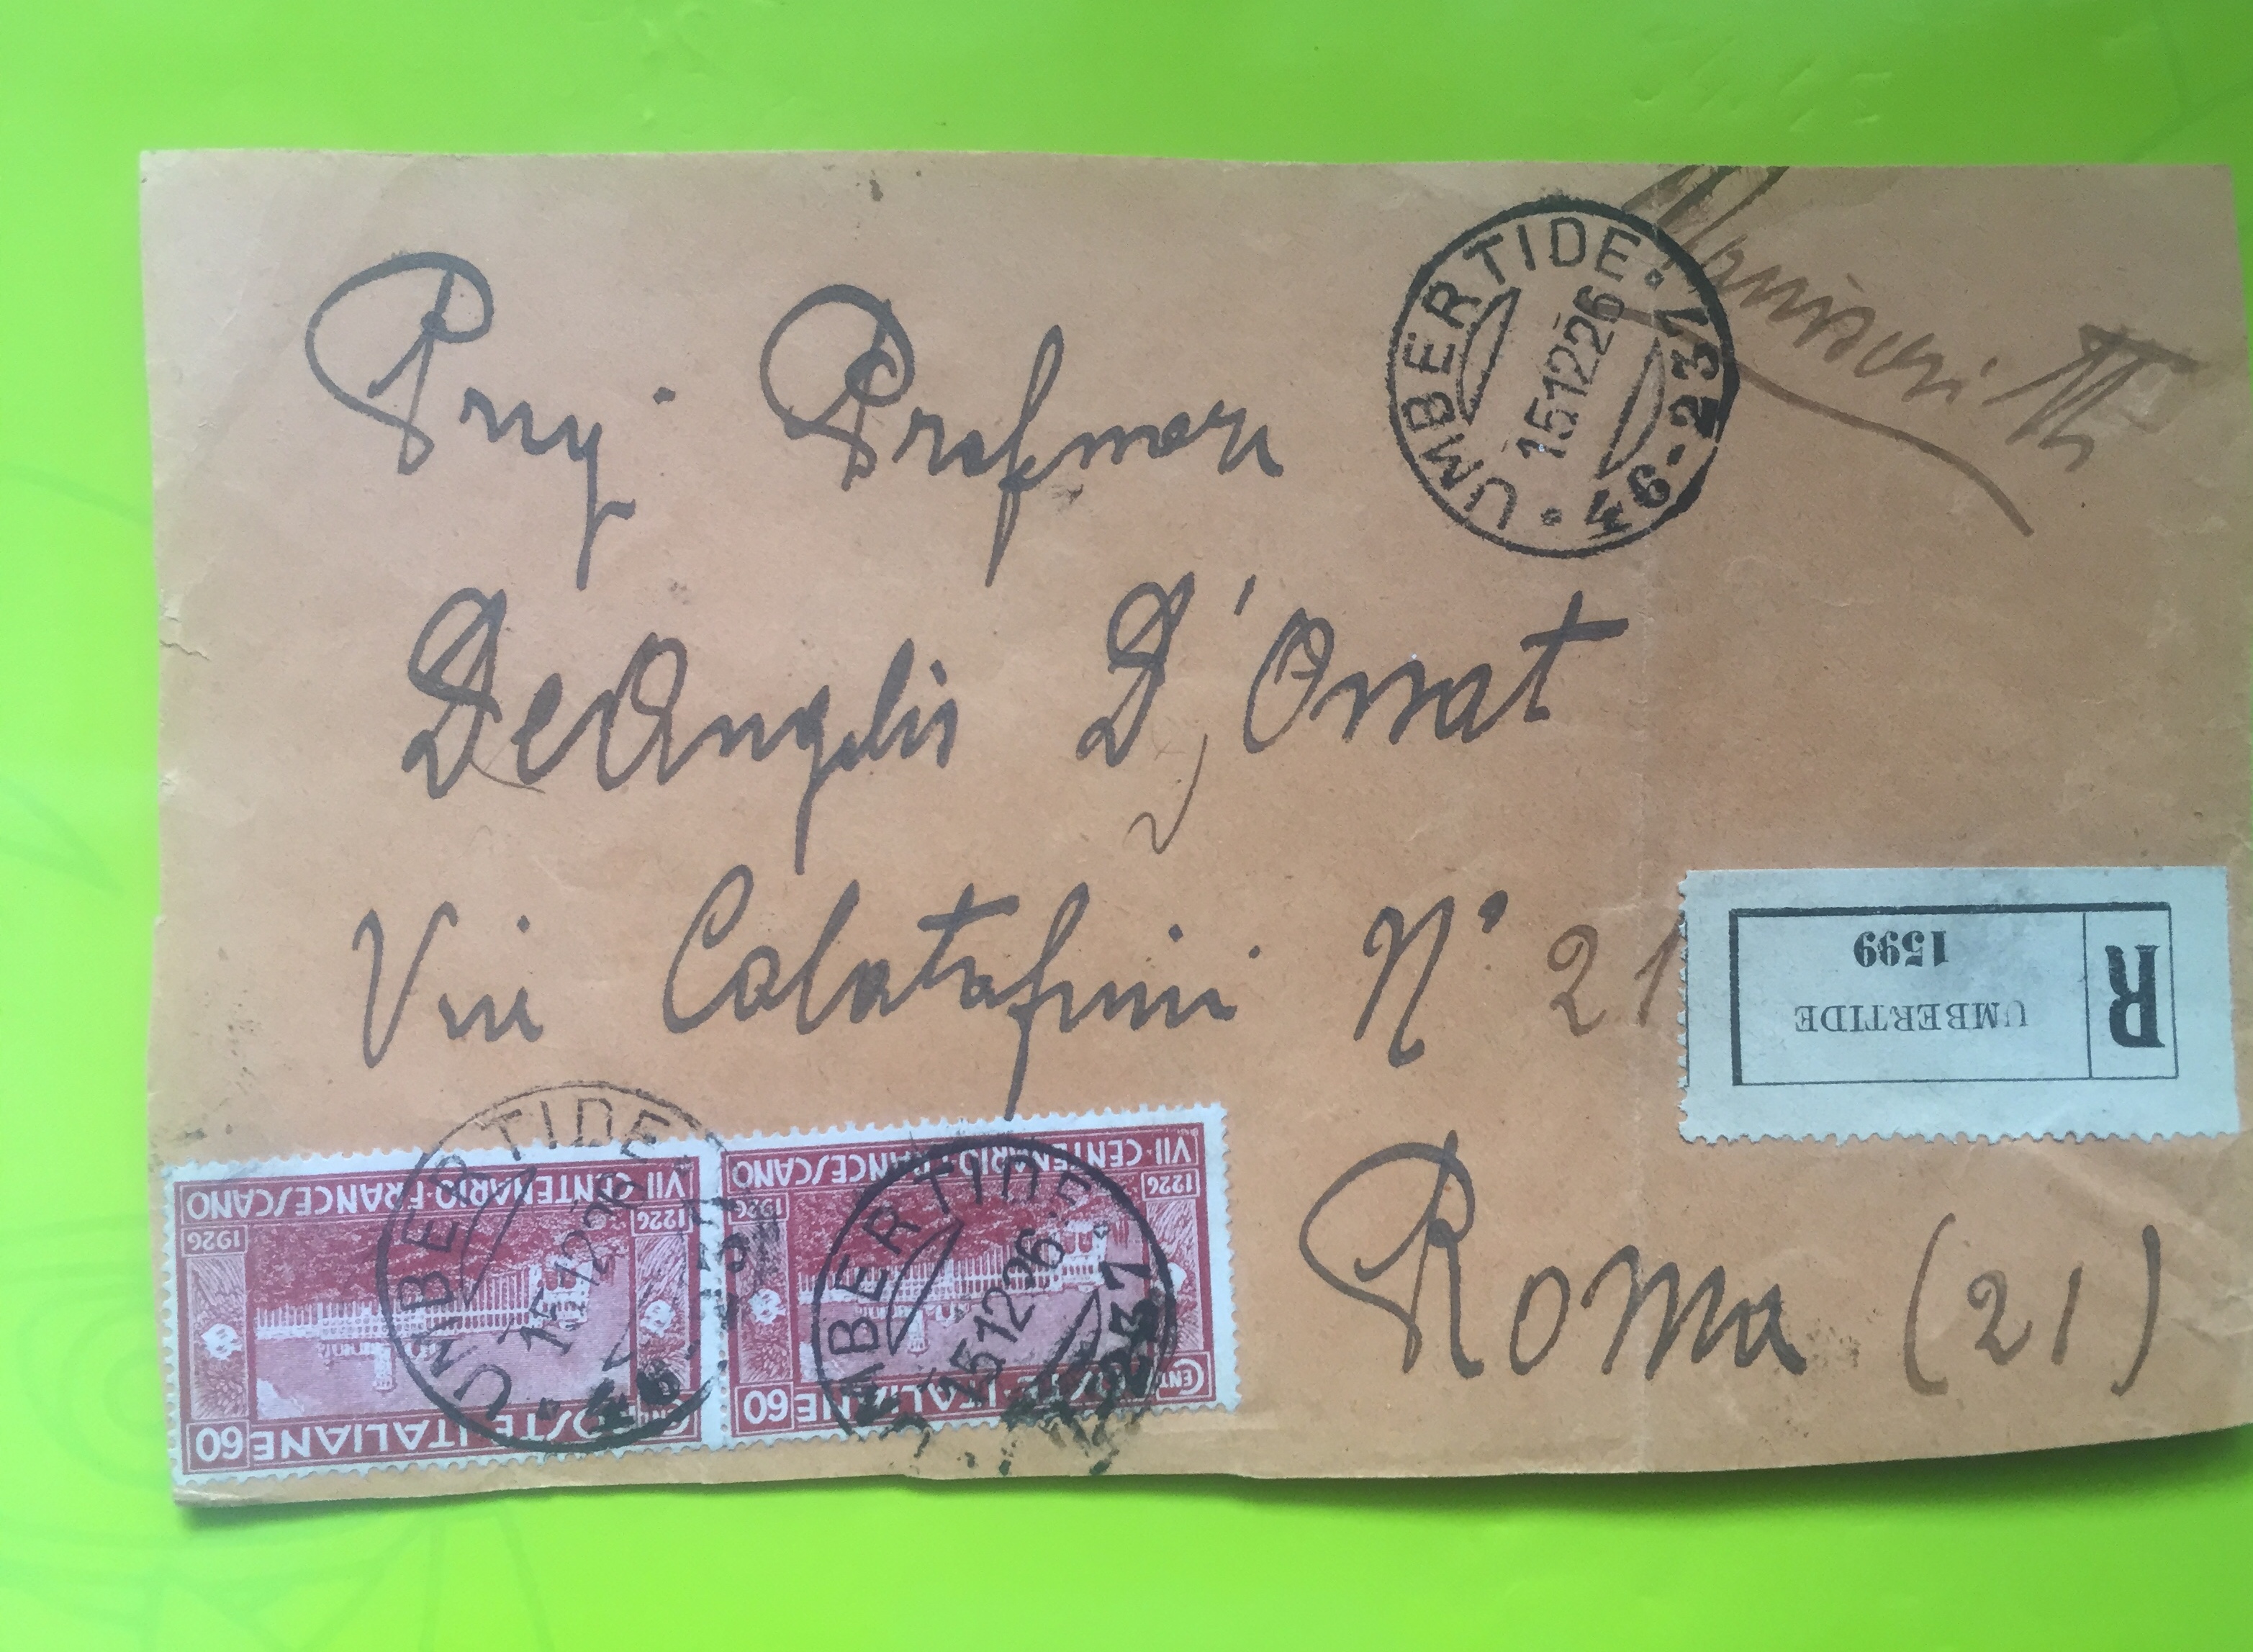 Manoscritti
UMBERTIDE · 46-237
15 12 26
Preg. Professore
De Angelis D'Ossat
Via Calatafimi N° 21
R
UMBERTIDE
1599
Roma (21)
VII · CENTENARIO · FRANCESCANO
1226 1926
POSTE · ITALIANE
CENT 60
UMBERTIDE
15 12 26
VII · CENTENARIO · FRANCESCANO
1226 1926
POSTE · ITALIANE
CENT 60
UMBERTIDE · 46-237
15 12 26